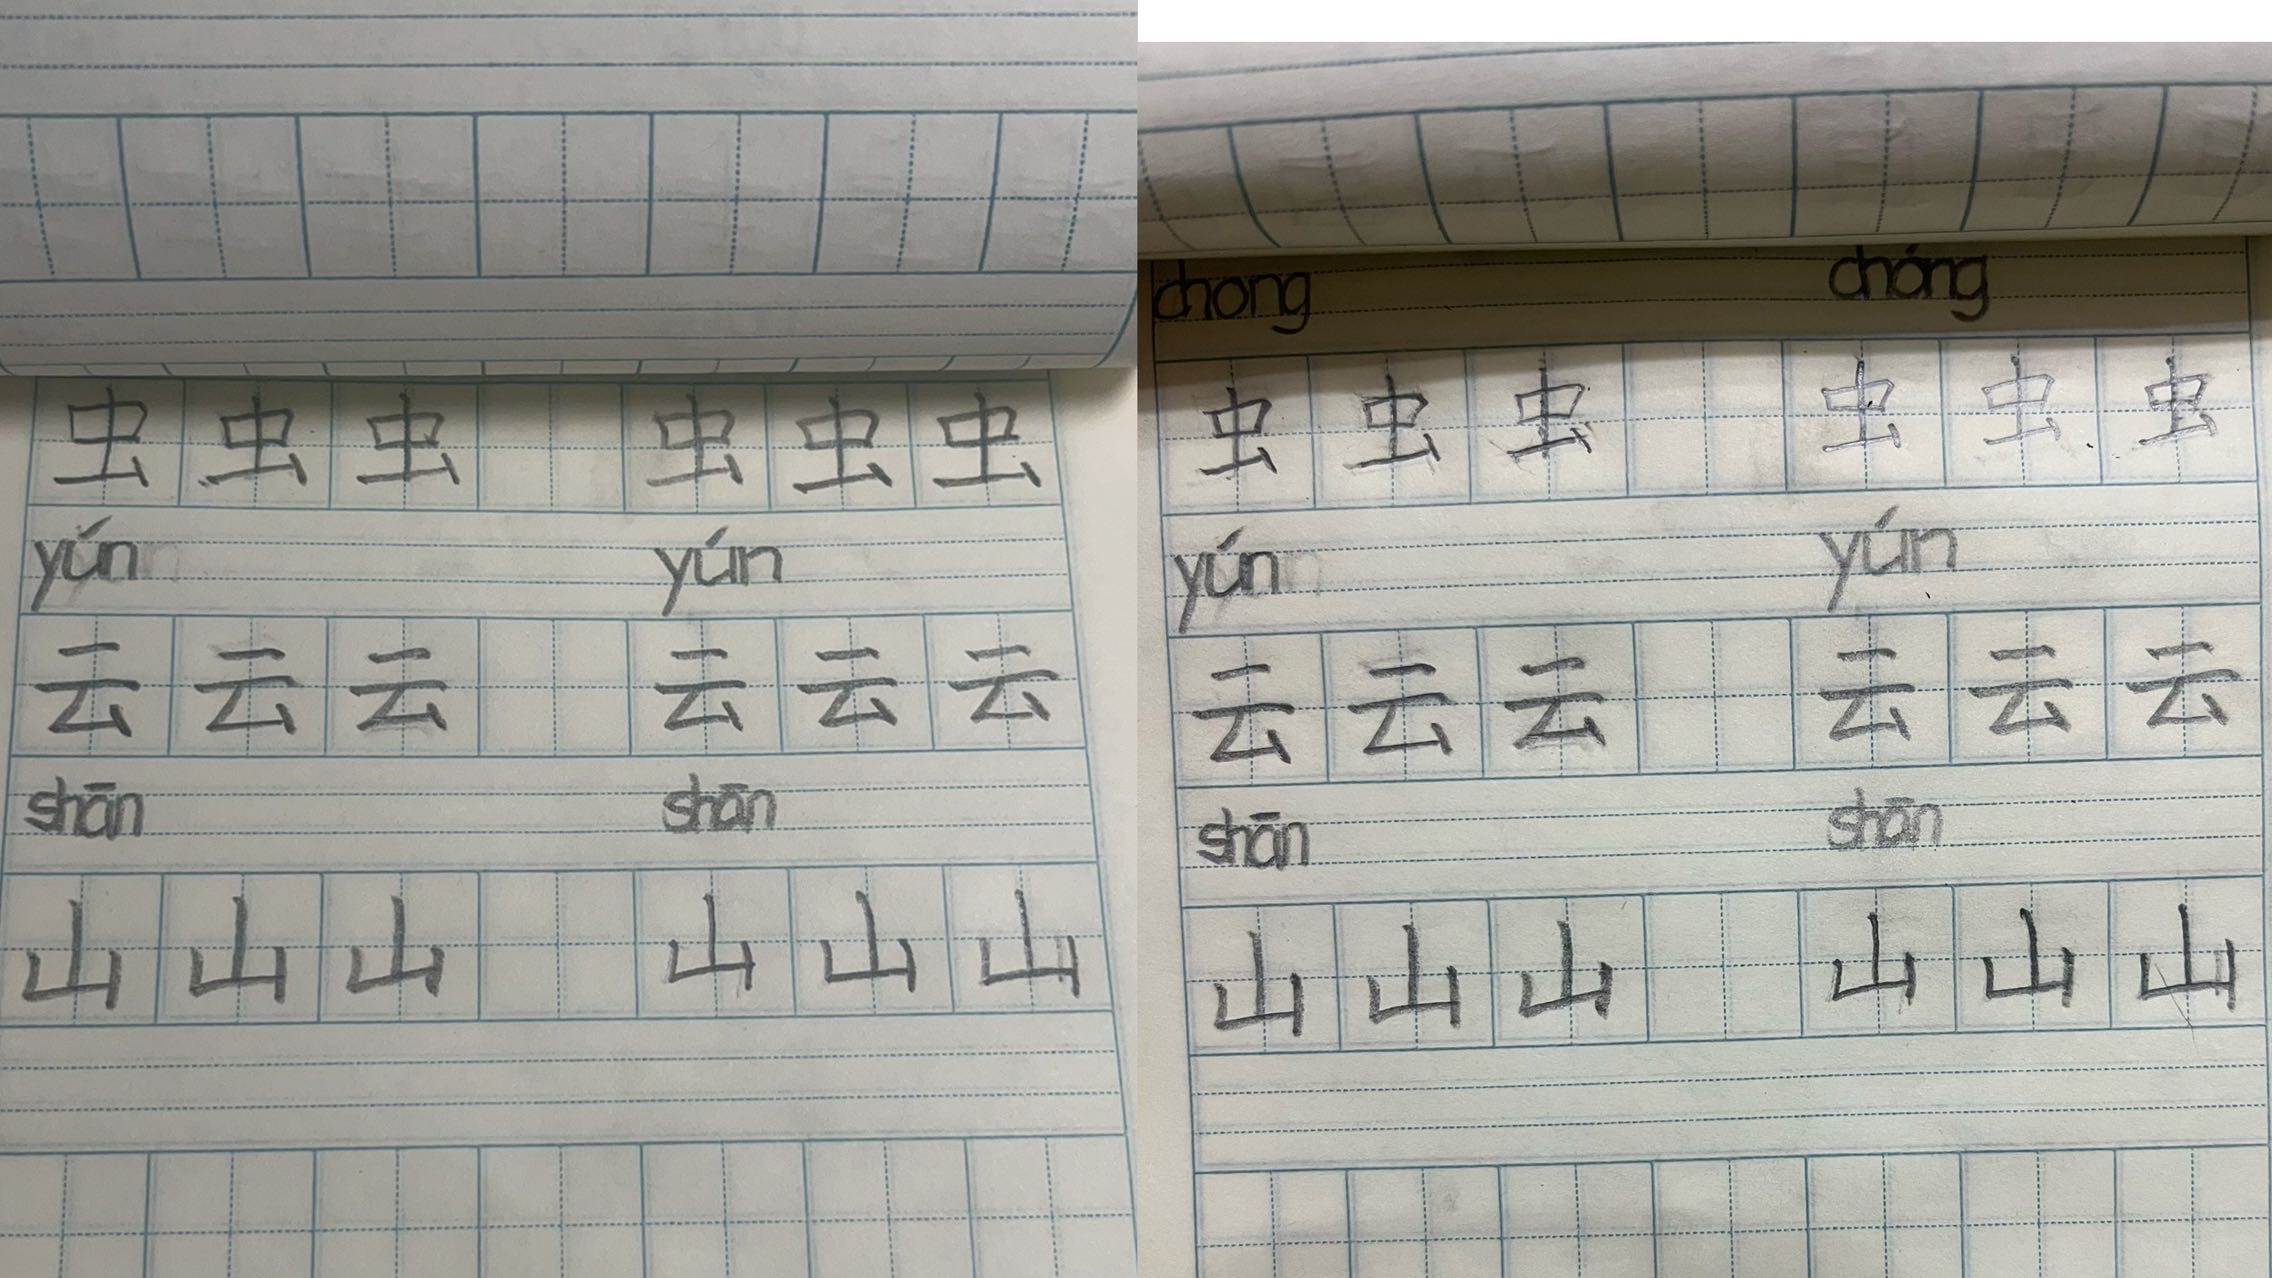 虫 虫 虫 虫 虫 虫
yún yún
云 云 云 云 云 云
shān shān
山 山 山 山 山 山
chong chóng
虫 虫 虫 虫 虫 虫
yún yún
云 云 云 云 云 云
shān shān
山 山 山 山 山 山